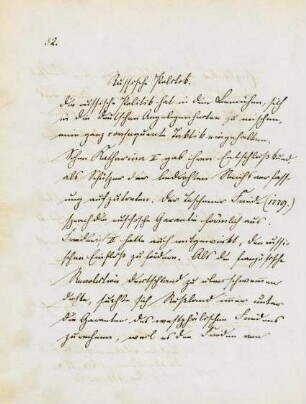 52.
Russische Politik.
Die russische Politik hat in dem Bemühen, sich
in die deutschen Angelegenheiten zu mischen,
eine ganz consequente Taktik eingehalten.
Schon Katharina II gab ihren Entschluß kund
als Schützer der bedrohten Reichsverfass-
ung aufzutreten. Der Teschner Friede (1779.)
sprach die russische Garantie förmlich aus.
Friedrich II hatte auch mitgewirkt, den russi-
schen Einfluß zu fördern. Als die französische
Revolution Deutschland zu überschwemmen
drohte, suchte sich Rußland immer unter
die Garanten des westphälischen Friedens
zu rechnen, weil es den Frieden von